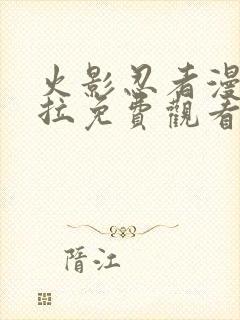 火影忍者漫
拉免費觀看
晉江